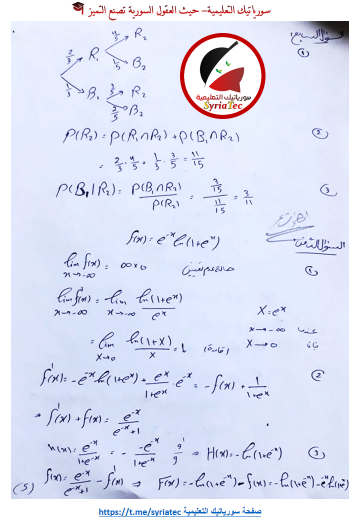 سورياتيك التعليمية- حيث العقول السورية تصنع التميز
السؤال السابع:
①
2/3 R₁ 4/5 R₂
1/5 B₂
1/3 B₁ 3/5 R₂
2/5 B₂
سورياتيك التعليمية
SyriaTec
P(R₂) = P(R₁∩R₂) + P(B₁∩R₂) ②
= 2/3 · 4/5 + 1/3 · 3/5 = 11/15
P(B₁|R₂) = P(B₁∩R₂)/P(R₂) = (3/15)/(11/15) = 3/11 ③
السؤال الثامن:
f(x) = e⁻ˣ ln(1+eˣ)
lim f(x) = ∞×0 حالة عدم تعيين ①
x→-∞
lim f(x) = lim ln(1+eˣ)/eˣ X = eˣ
x→-∞ x→-∞
x→-∞ عندما
= lim ln(1+X)/X = 1 X→0
X→0
f'(x) = -e⁻ˣ ln(1+eˣ) + eˣ/(1+eˣ) · e⁻ˣ = -f(x) + 1/(1+eˣ) ②
⇒ f'(x) + f(x) = e⁻ˣ/(e⁻ˣ+1)
h(x) = e⁻ˣ/(1+e⁻ˣ) = - (-e⁻ˣ)/(1+e⁻ˣ) g'/g ⇒ H(x) = -ln(1+e⁻ˣ) ③
f(x) = e⁻ˣ/(e⁻ˣ+1) - f'(x) ⇒ F(x) = -ln(1+e⁻ˣ) - f(x) = -ln(1+e⁻ˣ) - e⁻ˣ ln(1+eˣ)
(5)
صفحة سورياتيك التعليمية https://t.me/syriatec